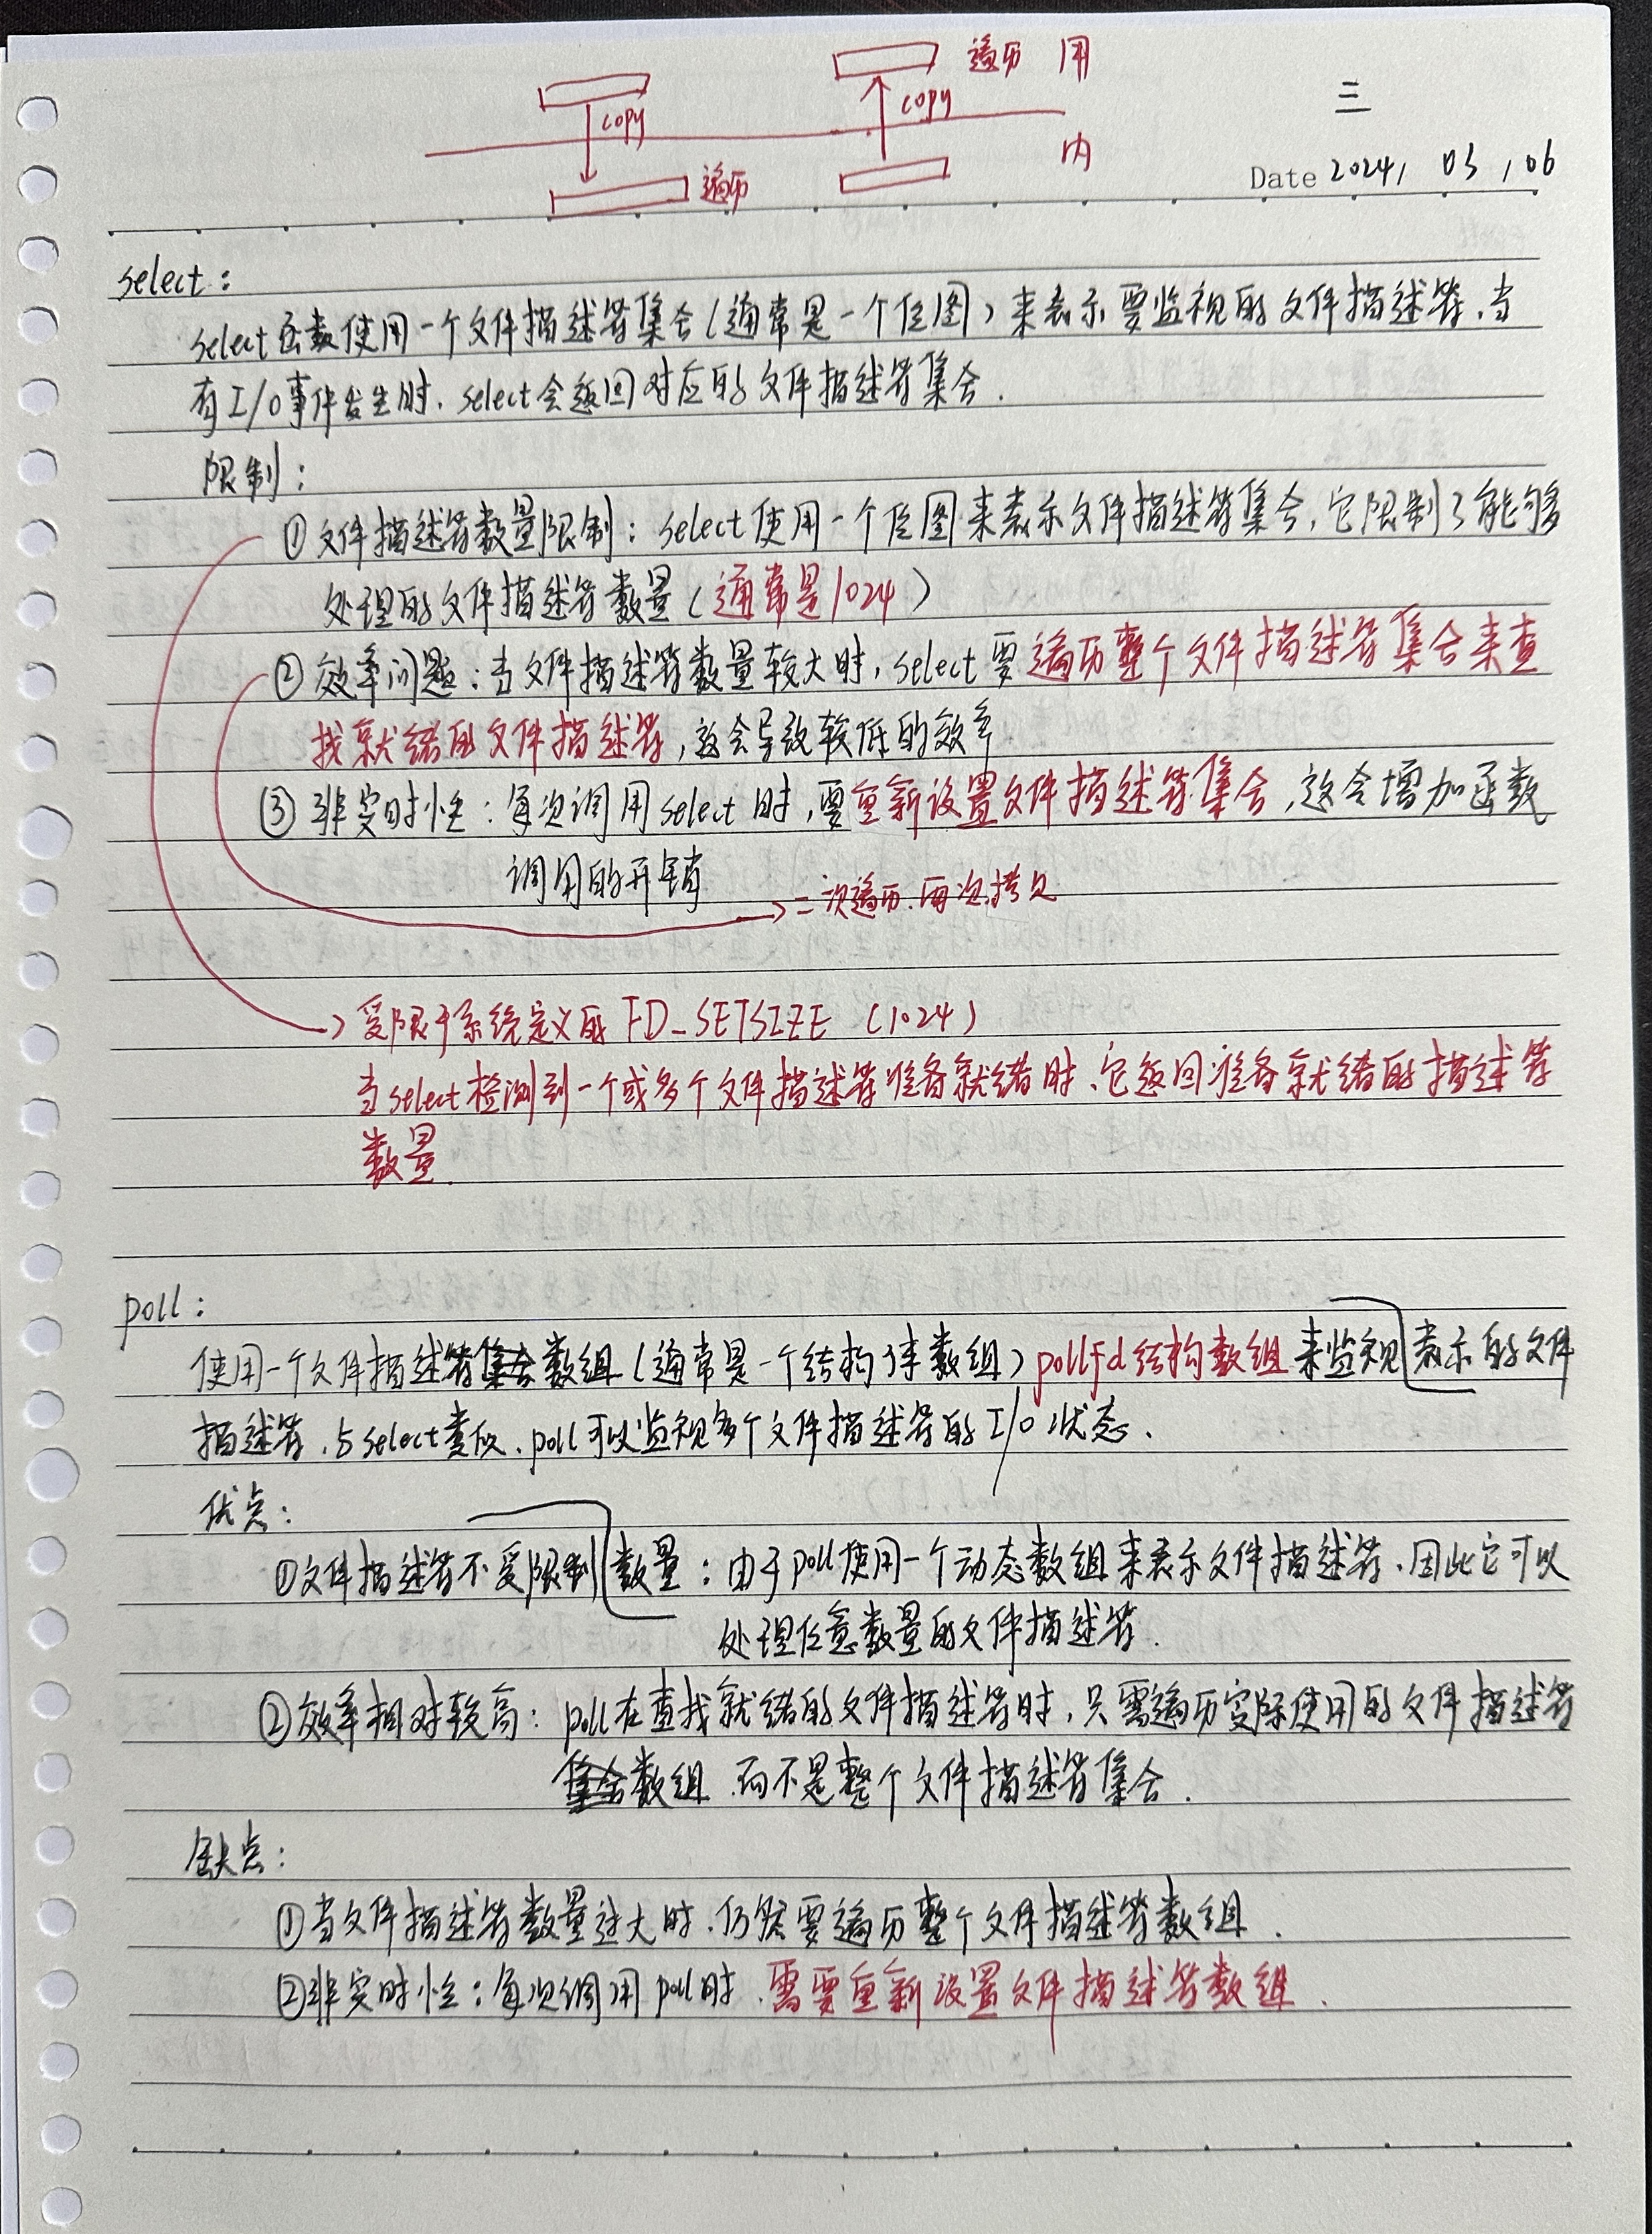 遍历 用
copy copy
三
内
遍历
Date 2024, 03, 06
select:
select函数使用一个文件描述符集合(通常是一个位图)来表示要监视的文件描述符,当
有I/O事件发生时,select会返回对应的文件描述符集合.
限制:
①文件描述符数量限制:select使用一个位图来表示文件描述符集合,它限制了能够
处理的文件描述符数量(通常是1024)
②效率问题:当文件描述符数量较大时,select要遍历整个文件描述符集合来查
找就绪的文件描述符,这会导致较低的效率
③非实时性:每次调用select时,要重新设置文件描述符集合,这会增加函数
调用的开销
→二次遍历.两次拷贝
→受限于系统定义的FD_SETSIZE (1024)
当select检测到一个或多个文件描述符准备就绪时,它返回准备就绪的描述符
数量.
poll:
使用一个文件描述符集合数组(通常是一个结构体数组)pollfd结构数组来监视表示的文件
描述符.与select类似.poll可以监视多个文件描述符的I/O状态.
优点:
①文件描述符不受限制数量:由于poll使用一个动态数组来表示文件描述符.因此它可以
处理任意数量的文件描述符.
②效率相对较高:poll在查找就绪的文件描述符时,只需遍历实际使用的文件描述符
集合数组.而不是整个文件描述符集合.
缺点:
①当文件描述符数量过大时.仍然要遍历整个文件描述符数组.
②非实时性:每次调用poll时.需要重新设置文件描述符数组.